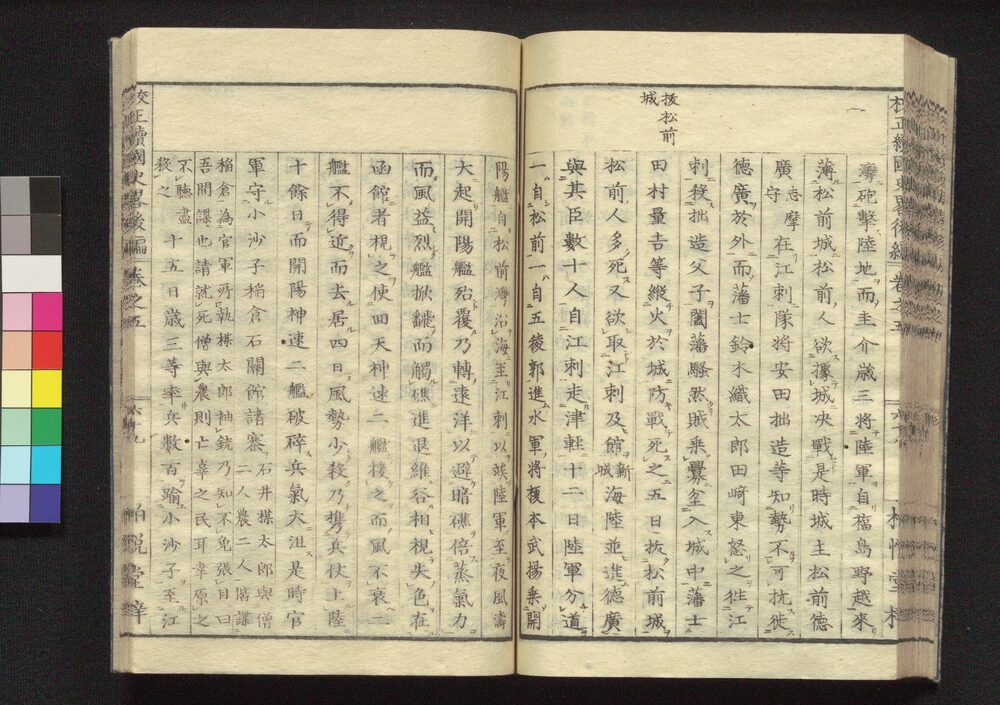 拔松前
城
灣砲擊陸地而圭介歲三將陸軍自福島野越來
薄松前城松前人欲攖城決戰是時城主松前德
廣志摩守在江刺隊將安田拙造等知勢不可抗徙
德廣於外而藩士鈴木織太郎田崎東怒之徃江
刺殺拙造父子闔藩騷然賊乘釁坌入城中藩士
田村量吉等縱火於城防戰死之五日拔松前城
松前人多死又欲取江刺及館新城海陸並進德廣
與其臣數十人自江刺走津輕十二日陸軍分道
一自松前一自五稜郭進水軍將榎本武揚乘開
陽艦自松前灣沿海至江刺以竢陸軍至夜風濤
大起開陽艦殆覆乃轉遠洋以避暗礁倍蒸氣力
而風益烈艦掀飜而觸礁進退維谷相視失色在
函館者視之使回天神速二艦援之而風不衰二
艦不得近而去居四日風勢少殺乃携兵仗上陸
十餘日而開陽神速二艦破碎兵氣大沮是時官
軍守小沙子稲倉石關館諸寨石井楳太郎與僧二人農二人偕諜
稲倉為官軍所執楳太郎袖銃乃知不免張目曰
吾間諜也請就死僧與農則亡辜之民耳幸原之
不聽盡殺之十五日歲三等率兵數百踰小沙子至江
校正續國史畧後編 卷之五
柏悅堂梓